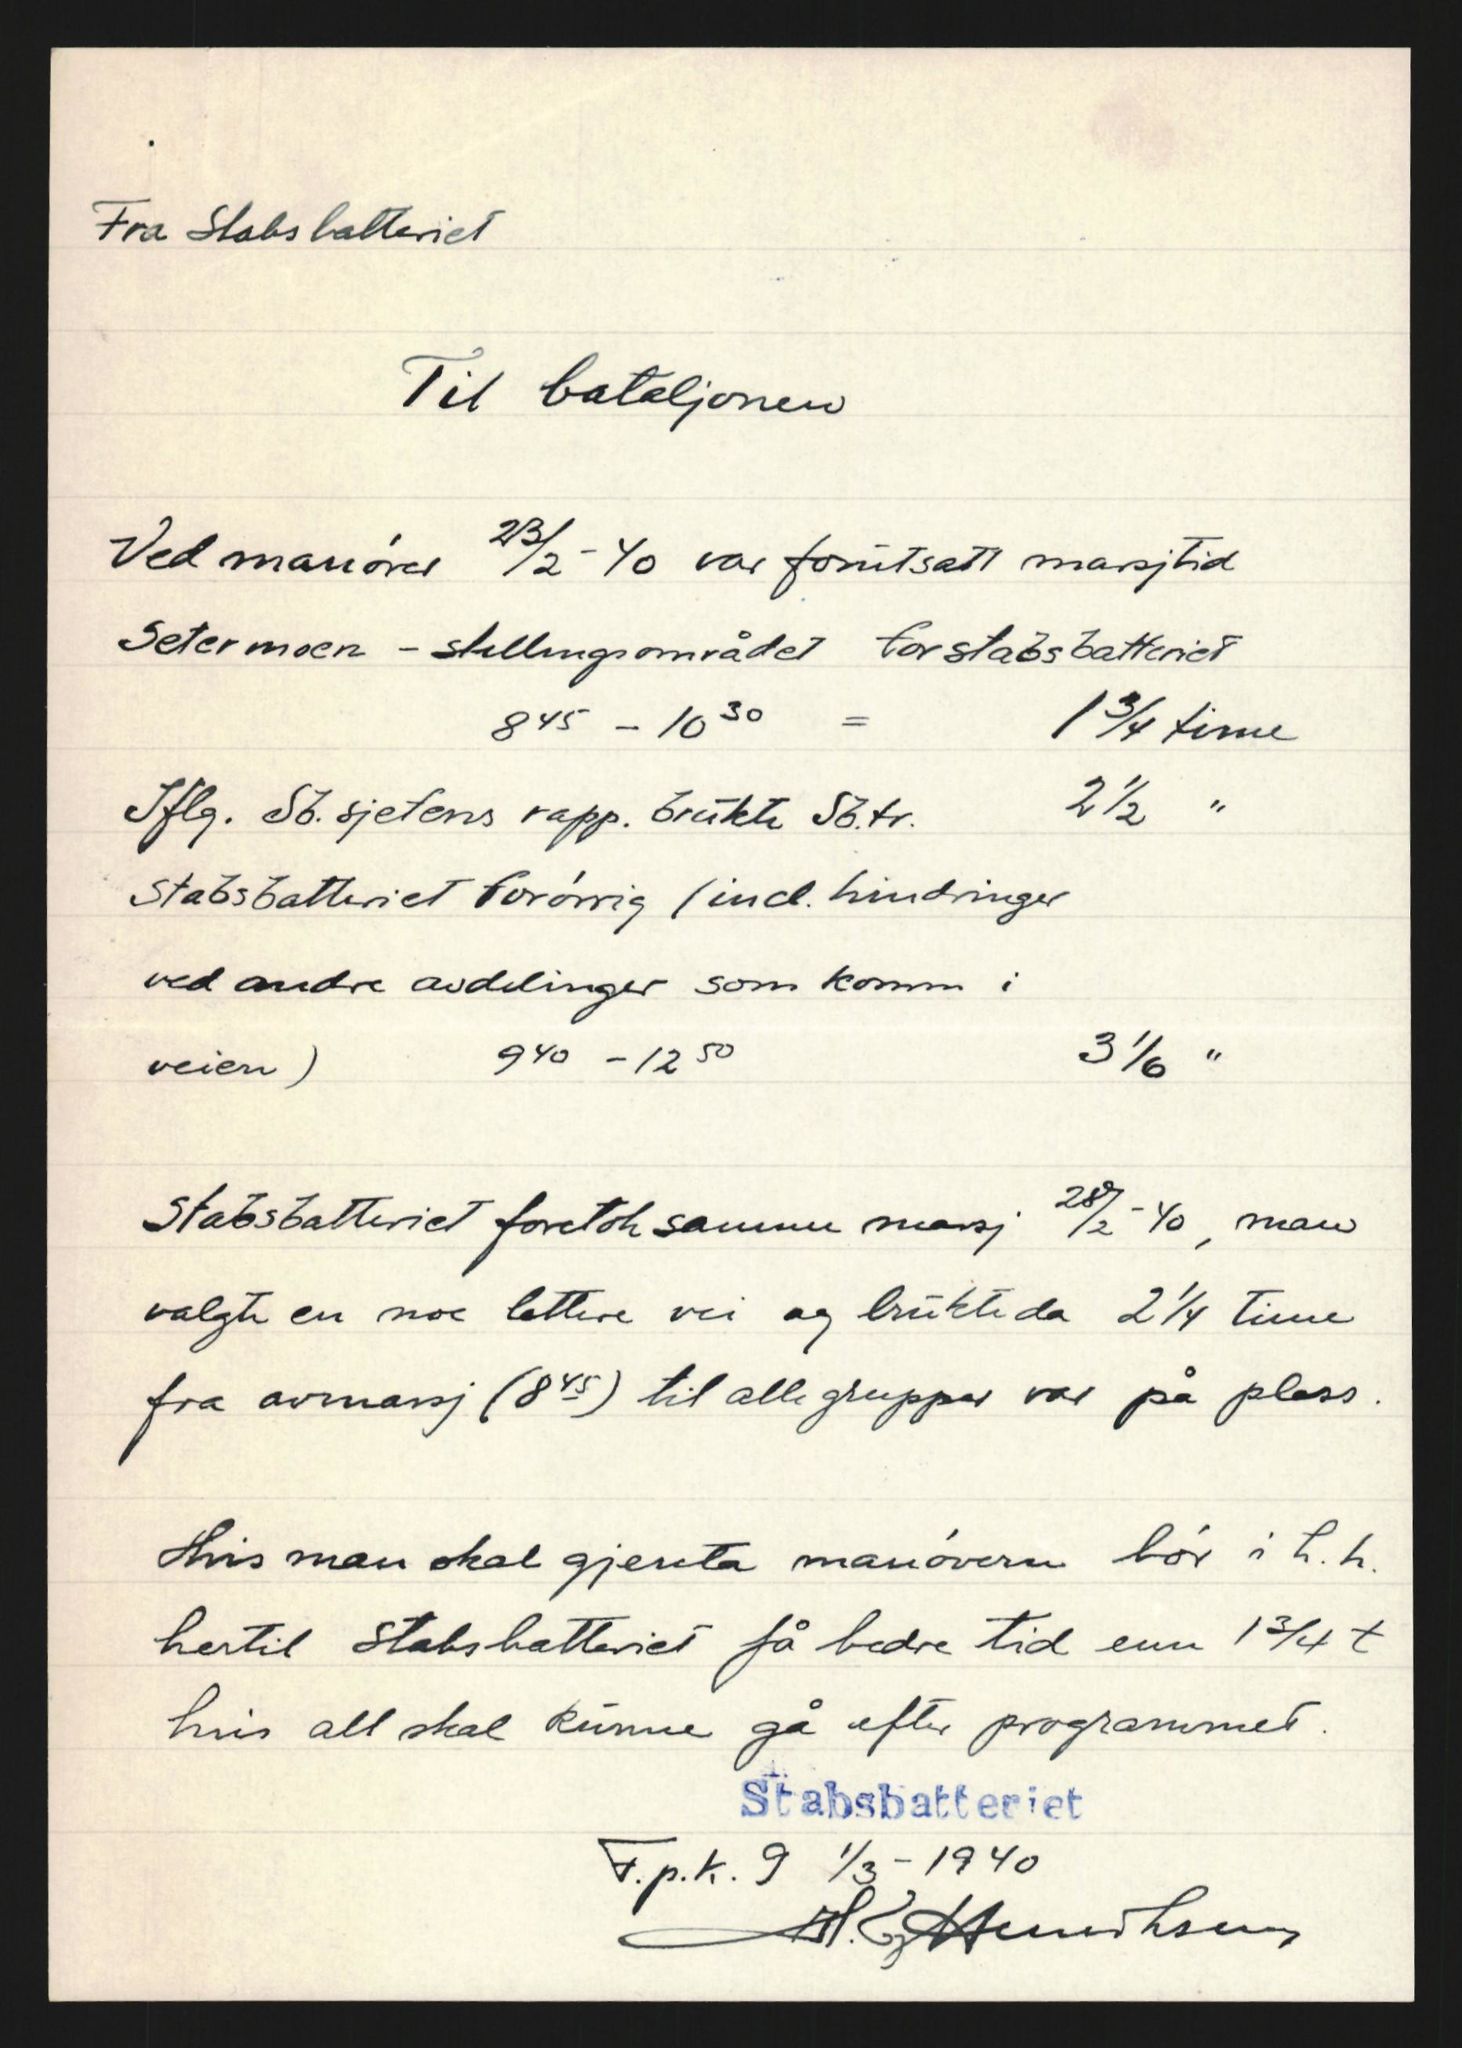 Fra Stabsbatteriet
Til bataljonen
Ved manöver 23/2-40 var forutsatt marsjtid
Setermoen - stillingsområdet for stabsbatteriet
8 45 - 10 30 = 1 3/4 time
Iflg. Sb.sjefens rapp. brukte Sb.tr. 2 1/2 "
Stabsbatteriet forövrig (incl. hindringer
ved andre avdelinger som komm i
veien) 9 40 - 12 50 3 1/6 "
Stabsbatteriet foretok samme marsj 28/2-40, man
valgte en noe lettere vei og brukte da 2 1/4 time
fra avmarsj (8 45) til alle grupper var på plass.
Hvis man skal gjenta manövern bör i h. h.
hertil Stabsbatteriet få bedre tid enn 1 3/4 t
hvis alt skal kunne gå efter programmet.
Stabsbatteriet
F.p.k. 9 1/3-1940
Henrihsen